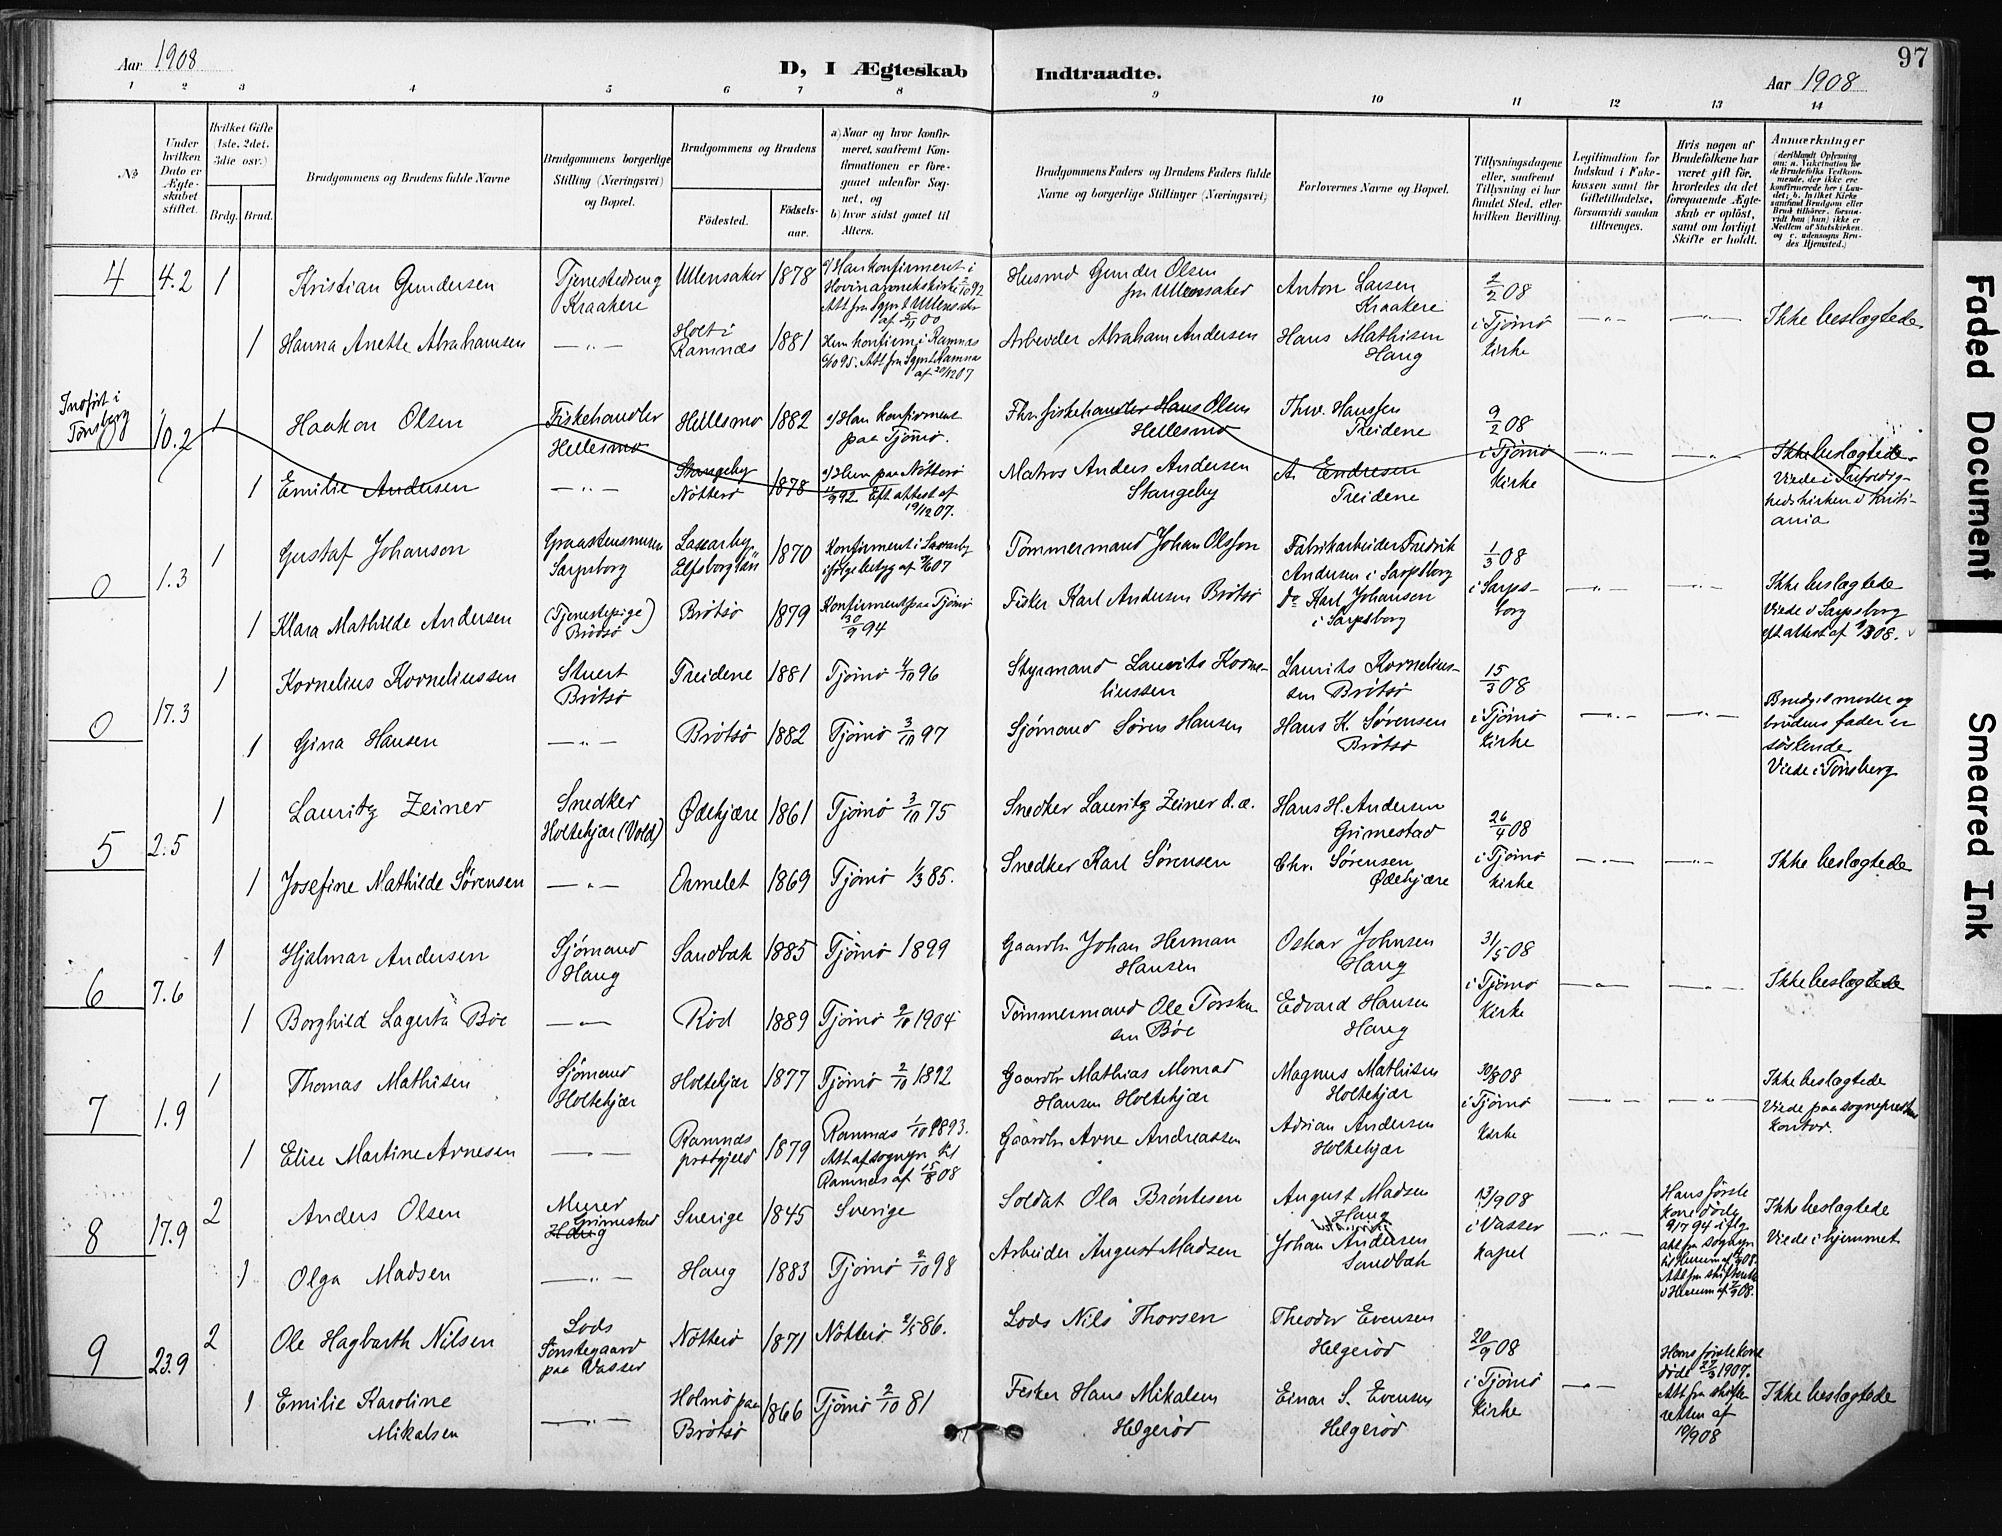 Aar 1908
D, I Ægteskab Indtraadte.
Aar 1908
97
1 2 3 4 5 6 7 8 9 10 11 12 13 14
No
Under hvilken Dato er Ægteskabet stiftet.
Hvilket Gifte (1ste, 2det, 3die osv.)
Brdg. Brud.
Brudgommens og Brudens fulde Navne
Brudgommens borgerlige Stilling (Næringsvei) og Bopæl.
Brudgommens og Brudens
Fødested.
Fødsels-aar.
a) Naar og hvor konfirmeret, saafremt Konfirmationen er foregaaet udenfor Sognet, og
b) hvor sidst gaaet til Alters.
Brudgommens Faders og Brudens Faders fulde Navne og borgerlige Stillinger (Næringsvei)
Forlovernes Navne og Bopæl.
Tillysningsdagene eller, saafremt Tillysning ei har fundet Sted, efter hvilken Bevilling.
Legitimation for Indskud i Enkekassen samt for Giftetilladelse, forsaavidt saadan tiltrænges.
Hvis nogen af Brudefolkene har været gift før, hvorledes da det foregaaende Ægteskab er opløst, samt om lovligt Skifte er holdt.
Anmærkninger
(deriblandt Oplysning om: a. Vakcination for de Brudefolks Vedkommende, der ikke ere konfirmerede her i Landet; b. hvilket Kirkesamfund Brudgom eller Brud tilhører, forsaavidt han (hun) ikke er Medlem af Statskirken, og c. udensogns Brudes Hjemsted.)
4 4.2 1 Kristian Gundersen Tjenestedreng Kraakere Ullensaker 1878 a) Han konfirmeret i Hovin annekskirke 2/10 92 Att fra sgpr. t Ullensaker af 5/1 00 Husmd Gunder Olsen fra Ullensaker Anton Larsen Kraakere 2/2 08
1 Hanna Anette Abrahamsen —„— Holt i Ramnæs 1881 Hun konfirm. i Ramnæs 6/10 95. Att fra sgpr. t Ramnæs af 20/12 07 Arbeider Abraham Andersen Hans Mathisen Haug i Tjømø kirke —„— —„— Ikke beslægtede
Indført i Tønsberg
10.2 1 Haakon Olsen Fiskehandler Hellesmo Hellesmo 1882 a) Han konfirmert paa Tjømø. Fhv. fiskehandler Hans Olsen Hellesmo Thv. Hansen Treidene 9/2 08
1 Emilie Andersen —„— Stangeby Nøtterø 1878 a) Hun paa Nøtterø 92 Eft attest af 19/12 07. Matros Anders Andersen Stangeby A. Endresen Treidene i Tjømø kirke —„— —„— Ikke beslægtede. Viede i Trefoldighedskirken i Kristiania
0 1.3 1 Gustaf Johanson Graastensmurer Sarpsborg Elfsborg län 1870 Konfirmert i ifølge betyg af 07 Tømmermand Johan Olsson Fabrikarbeider Fredrik Andersen i Sarpsborg 1/3 08
1 Klara Mathilde Andersen (Tjenestepige) Brøtsø Brøtsø 1879 Konfirmert paa Tjømø 30/9 94 Fisker Karl Andersen Brøtsø Do Karl Johansen i Sarpsborg i Sarpsborg —„— —„— Ikke beslægtede Viede i Sarpsborg eft attest af 1/3 08.
0 17.3 1 Kornelius Korneliussen Stuert Brøtsø Treidene 1881 Tjømø 4/10 96 Styrmand Lauvits Korneliussen Laurits Korneliussen Brøtsø 15/3 08
1 Gina Hansen —„— Brøtsø 1882 Tjømø 3/10 97 Sjømand Søren Hansen Hans K. Sørensen Brøtsø i Tjømø kirke —„— —„— Brudg.s moder og brudens fader er søskende. Viede i Tønsberg
5 2.5 1 Lauritz Zeiner Snedker Holtekjær (Vold) Ødekjære 1861 Tjømø 3/10 75 Snedker Lauritz Zeiner d.æ. Hans H. Andersen Grimestad 26/4 08
1 Josefine Mathilde Sørensen —„— Ormelet 1869 Tjømø 1/3 85. Snedker Karl Sørensen Chr. Sørensen Ødekjære i Tjømø kirke —„— —„— Ikke beslægtede
6 7.6 1 Hjalmar Andersen Sjømand Haug Sandbæk 1885 Tjømø 1899 Gaardbr Johan Herman Hansen Oskar Johnsen Haug 31/5 08
1 Borghild Lagerta Bøe —„— Rød 1889 Tjømø 2/10 1904 Tømmermand Ole Torsten sen Bøe Edvard Hansen Haug i Tjømø kirke —„— —„— Ikke beslægtede
7 1.9 1 Thomas Mathisen Sjømand Holtekjær Holtekjær 1877 Tjømø 2/10 1892 Gaardbr Mathias Monrad Hansen Holtekjær Magnus Mathisen Holtekjær 30/8 08
1 Elise Martine Arnesen —„— Ramnæs prstgjeld 1879 Ramnæs 1/10 1893. Att af sognepr. til Ramnæs af 15/8 08 Gaardbr Arne Andreassen Adrian Andersen Holtekjær i Tjømø kirke —„— —„— Ikke beslægtede Viede paa sogneprestens kontor.
8 17.9 2 Anders Olsen Murer Grimestad Haug Sverige 1845 Sverige Soldat Ola Brøntesen August Madsen Haug 13/9 08
1 Olga Madsen —„— Haug 1883 Tjømø 2/10 98 Arbeider August Madsen Johan Andersen Sandbæk i Vasser kapel —„— Hans første kone døde 9/7 94 iflg. att fra sognepr. 08. Att fra skifteret 08. Ikke beslægtede Viede i hjemmet
9 23.9 2 Ole Hagbarth Nilsen Lods Tønstegaard paa Vasser Nøtterø 1871 Nøtterø 2/5 86. Lods Nils Thorsen Theodor Evensen Helgerød 20/9 08
1 Emilie Karoline Mikalsen —„— Holmø paa Brøtsø 1866 Tjømø 2/10 81 Fisker Hans Mikalsen Helgerød Einar S. Evensen Helgerød i Tjømø kirke —„— Hans første kone døde 27/3 1907. Att fra skifteretten af 19/9 08 Ikke beslægtede
Faded Document
Smeared Ink